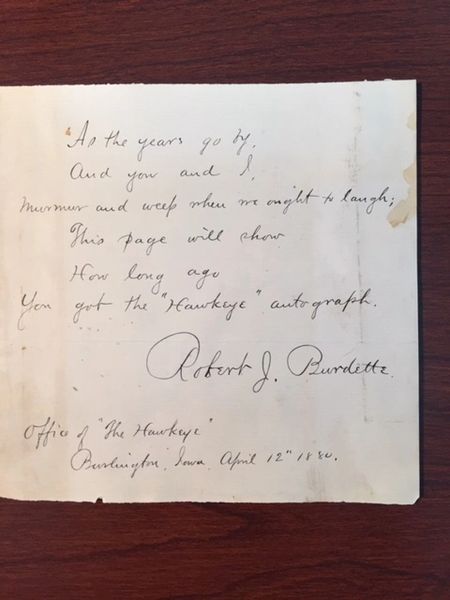 As the years go by,
And you and I,
Murmur and weep when we ought to laugh;
This page will show
How long ago
You got the "Hawkeye" autograph.
Robert J. Burdette.
Office of "The Hawkeye"
Burlington, Iowa. April 12" 1880.